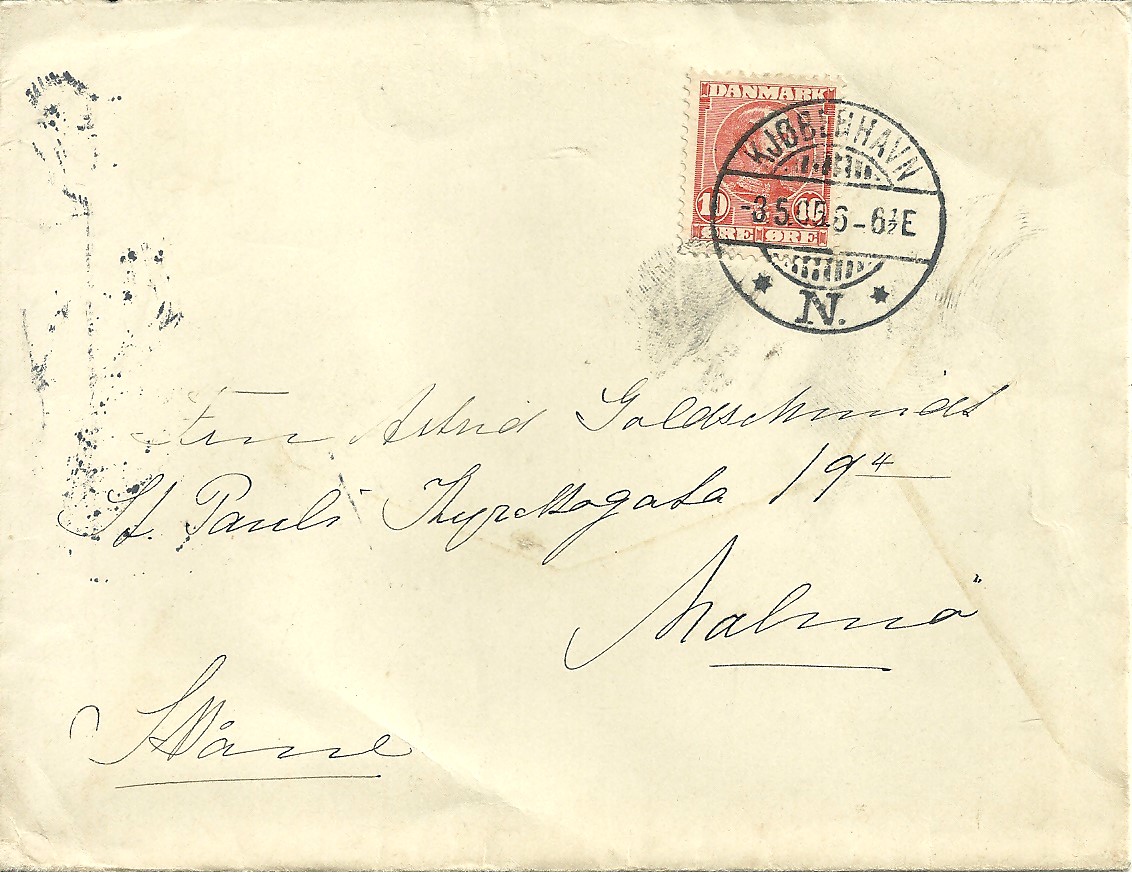 DANMARK
10 10
ØRE ØRE
KJØBENHAVN
-3.5.05.6-6½E
* N. *
Fru Astrid Goldschmidt
St. Pauli Kyrkogata 19⁴
Malmö
Skåne